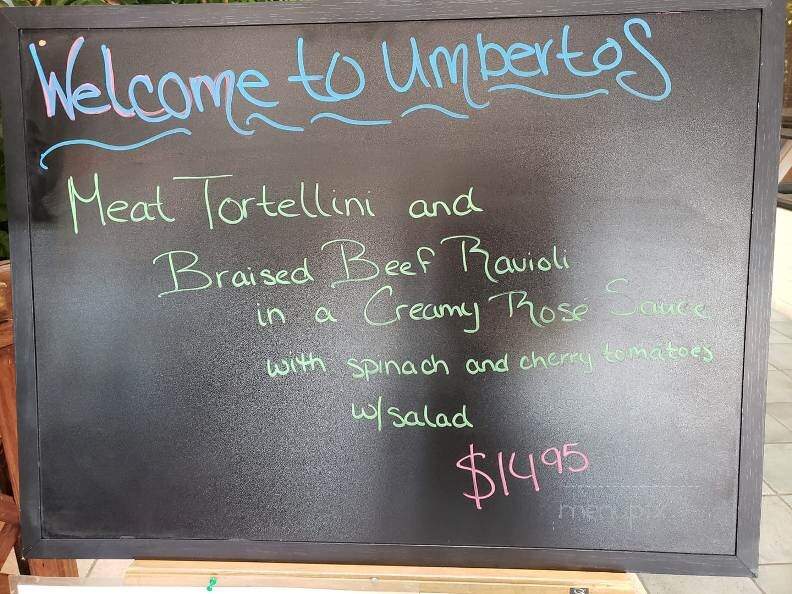 Welcome to Umbertos
Meat Tortellini and
Braised Beef Ravioli
in a Creamy Rosé Sauce
with spinach and cherry tomatoes
w/salad
$14.95
menupix